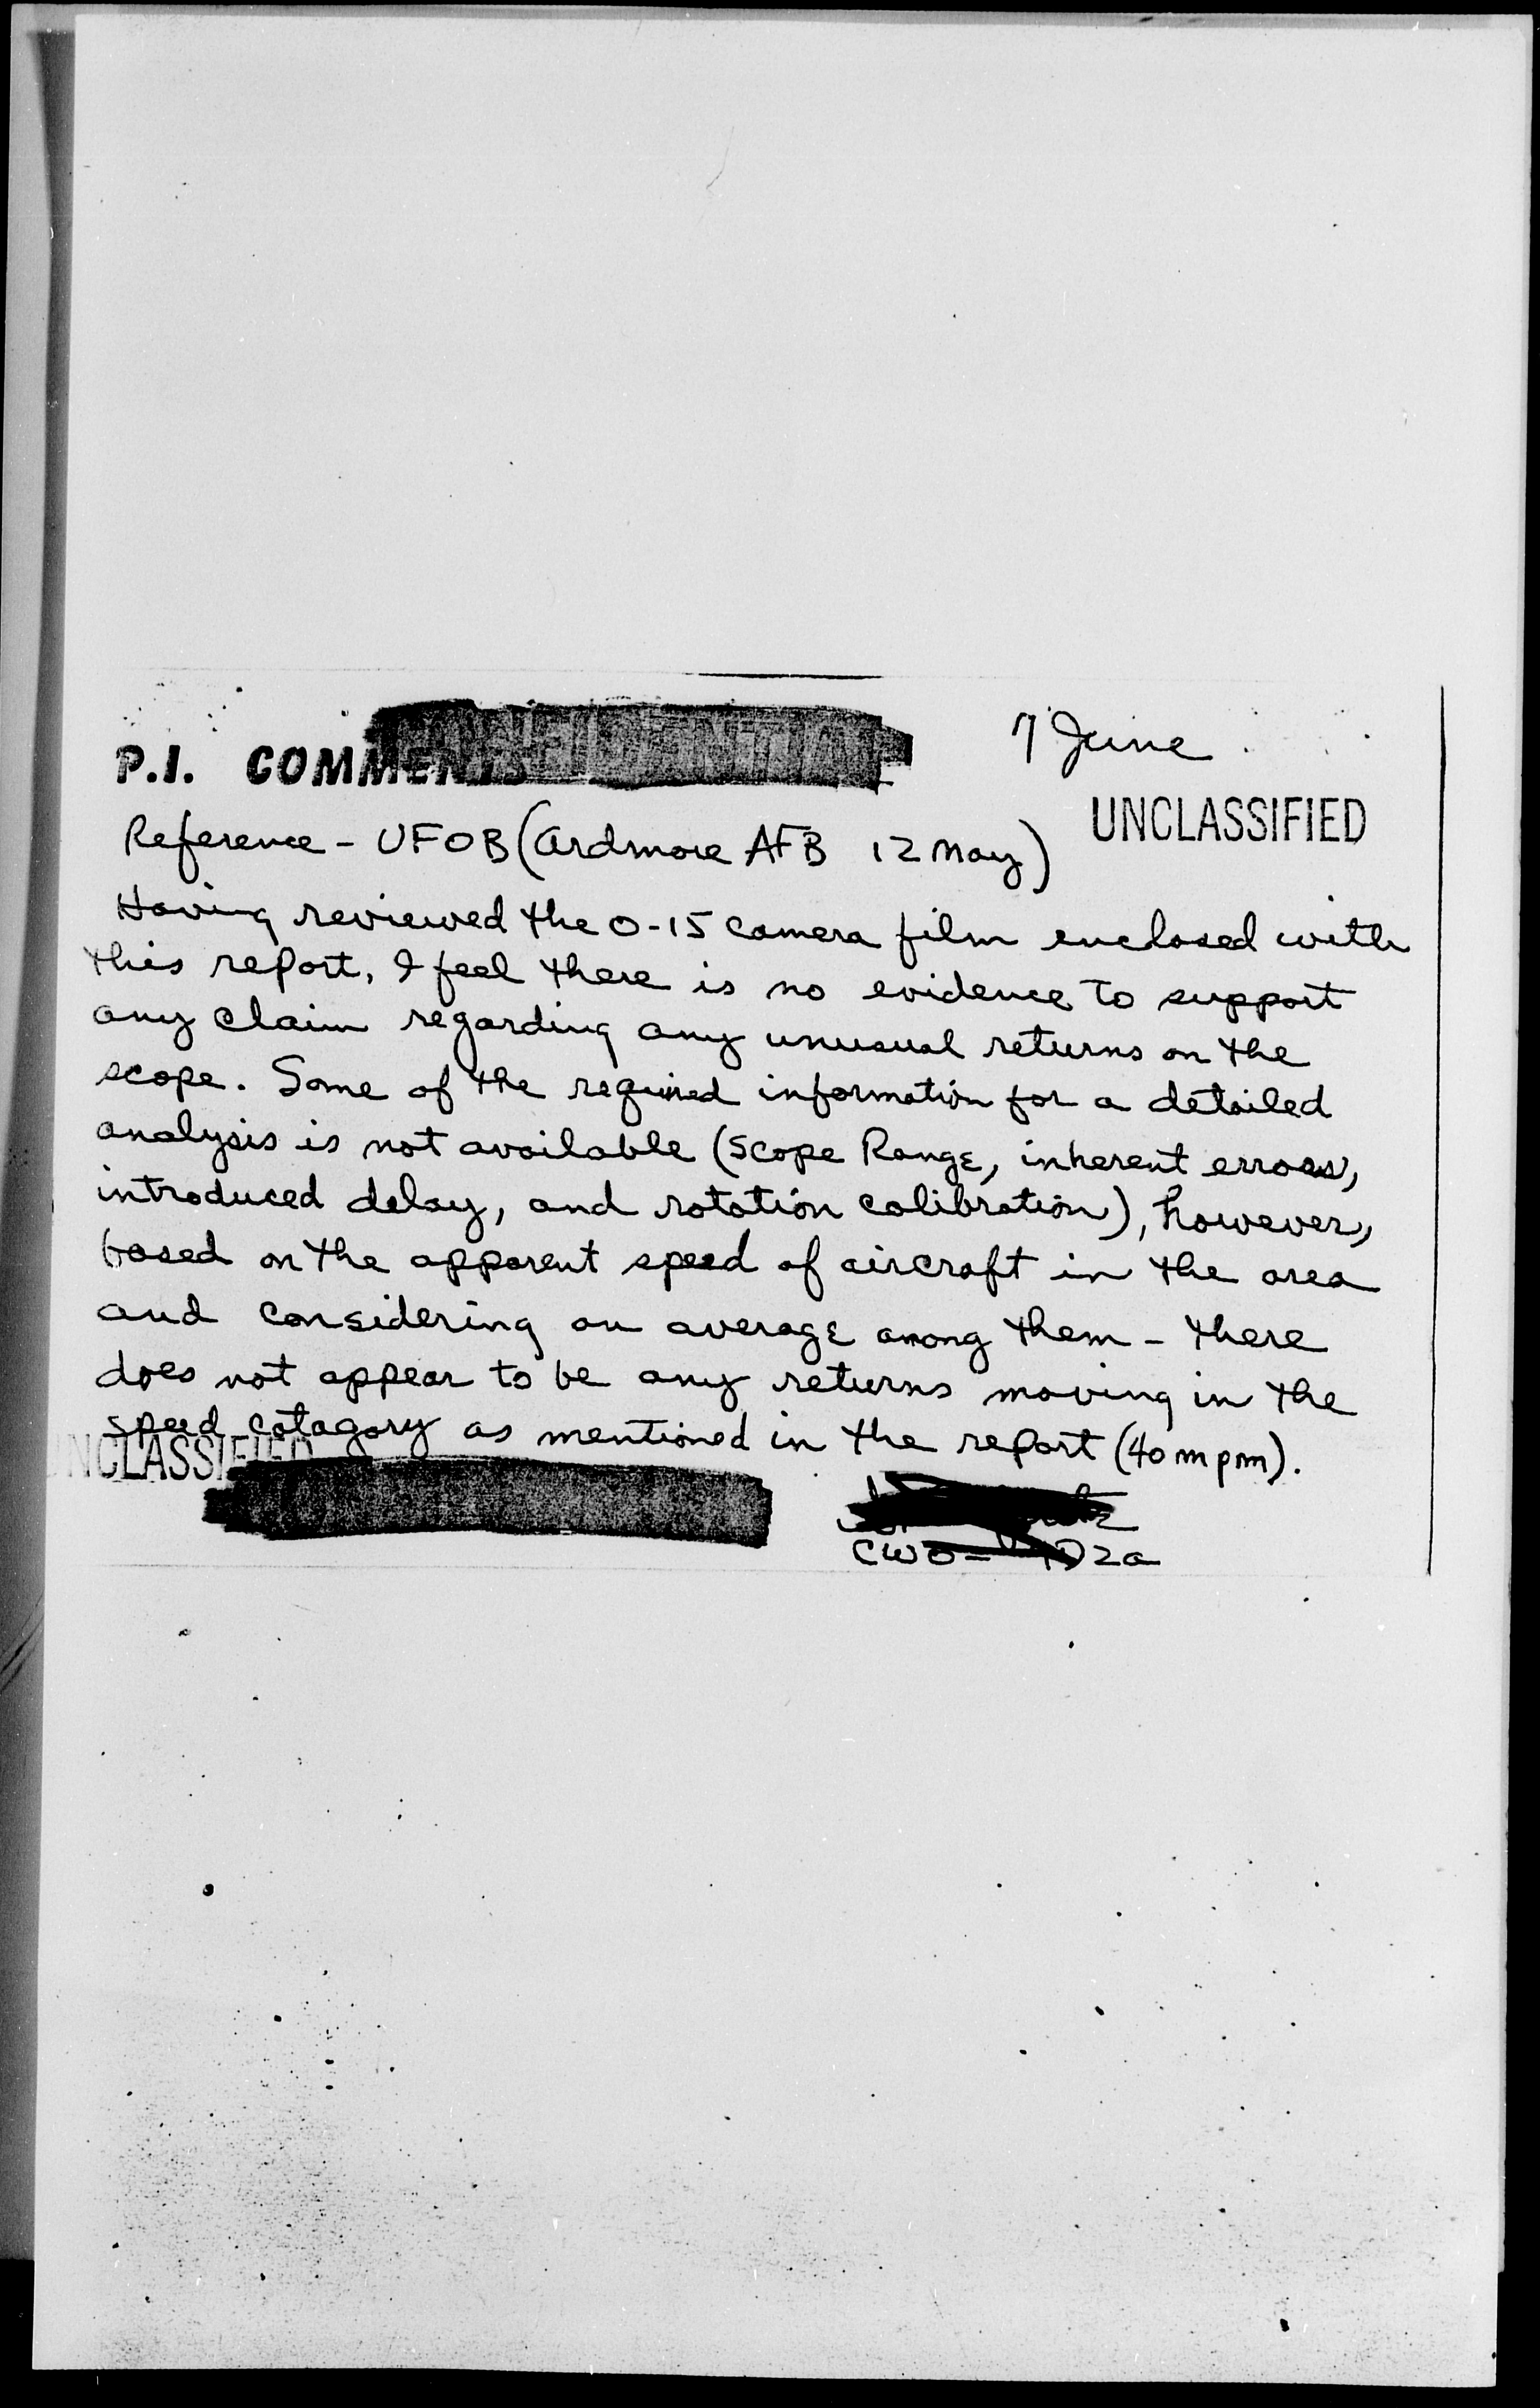 CONFIDENTIAL
7 June
P.I. COMMENTS
UNCLASSIFIED
Reference - UFOB (Ardmore AFB 12 May)
Having reviewed the O-15 camera film enclosed with
this report, I feel there is no evidence to support
any claim regarding any unusual returns on the
scope. Some of the required information for a detailed
analysis is not available (Scope Range, inherent errors,
introduced delay, and rotation calibration), however,
based on the apparent speed of aircraft in the area
and considering an average among them - there
does not appear to be any returns moving in the
speed catagory as mentioned in the report (40 mpm).
UNCLASSIFIED
CWO